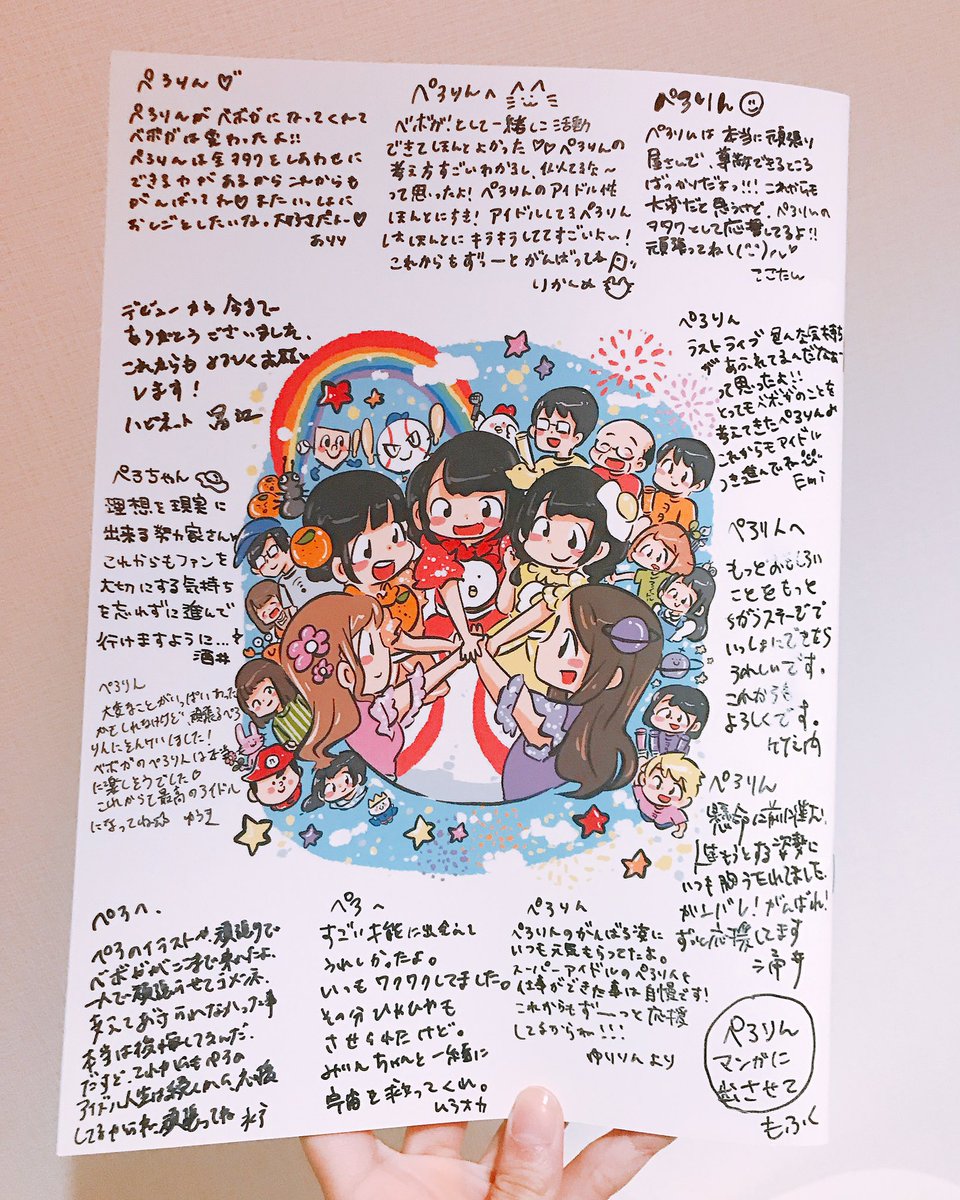 ぺろりん♡
ぺろりんがベボガになってくれて
ベボガは変わったよ!!
ぺろりんは全ヲタクをしあわせに
できる力があるからこれからも
がんばってね♡またいっしょに
おしごとしたいな。大好きだよー♡
ありり
ぺろりんへ
ベボガ!として一緒に活動
できてほんとよかった♡♡ぺろりんの
考え方すごいわかるし、似てるな〜
って思ったよ!ぺろりんのアイドル性
ほんとにすき!アイドルしてるぺろりん
はほんとにキラキラしててすごいよい!
これからもずぅーとがんばってね
りかんぬ
ぺろりん
ぺろりんは本当に頑張り
屋さんで、尊敬できるところ
ばっかりだよっ!!!これからも
大変だと思うけど、ぺろりんの
ヲタクとして応援してるよ!!
頑張ってね
てこたん
デビューから今まで
ありがとうございました。
これからもよろしくお願い
します!
ハピネット
ぺろりん
ラストライブ色んな気持ち
があふれてるんだなぁ
って思ったよ!!
とってもベボガのことを
考えてきたぺろりん
これからもアイドル
つき進んでね
Emi
ぺろちゃん
理想を現実に
出来る努力家さん
これからもファンを
大切にする気持ち
を忘れずに進んで
行けますように…
酒井
ぺろりんへ
もっとおもしろい
ことをもっと
ちがうステージで
いっしょにできたら
うれしいです。
これからも
よろしくです。
竹之内
ぺろりん
大変なことがいっぱいあった
かもしれないけど、頑張るぺろ
りんにそんけいしました!
ベボガのぺろりんは本当
に楽しそうでした♡
これからも最高のアイドル
になってね
ぺろりん
懸命に前に進み、
生きようとする姿勢に
いつも胸うたれてました
がんバレ!がんばれ!
ずっと応援してます
ぺろへ、
ぺろのイラストや、頑張りで
ベボガがここまで来れたよ。
一人で頑張らせてゴメンネ。
支えてあげられなかった事
本当は後悔してるんだ。
だけど、これからもぺろの
アイドル人生は続くから、応援
してるからね、頑張ってね
ぺろへ
すごい才能に出会えて
うれしかったよ。
いつもワクワクしてました。
その分ひやひやも
させられたけど。
みりんちゃんと一緒に
宇宙を救ってくれ。
ムラオカ
ぺろりん
ぺろりんのがんばる姿に
いつも元気もらってたよ。
スーパーアイドルのぺろりんと
仕事ができた事は自慢です!
これからもずーーっと応援
してるからね!!!
ゆりりんより
ぺろりん
マンガに
出させて
もふく